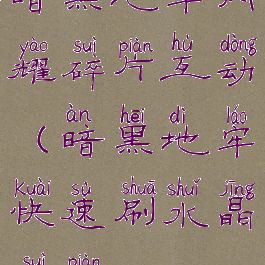 yào suì piàn hù dòng
耀碎片互动
àn hēi dì láo
（暗黑地牢
kuài sù shuā shuǐ jīng
快速刷水晶
suì piàn